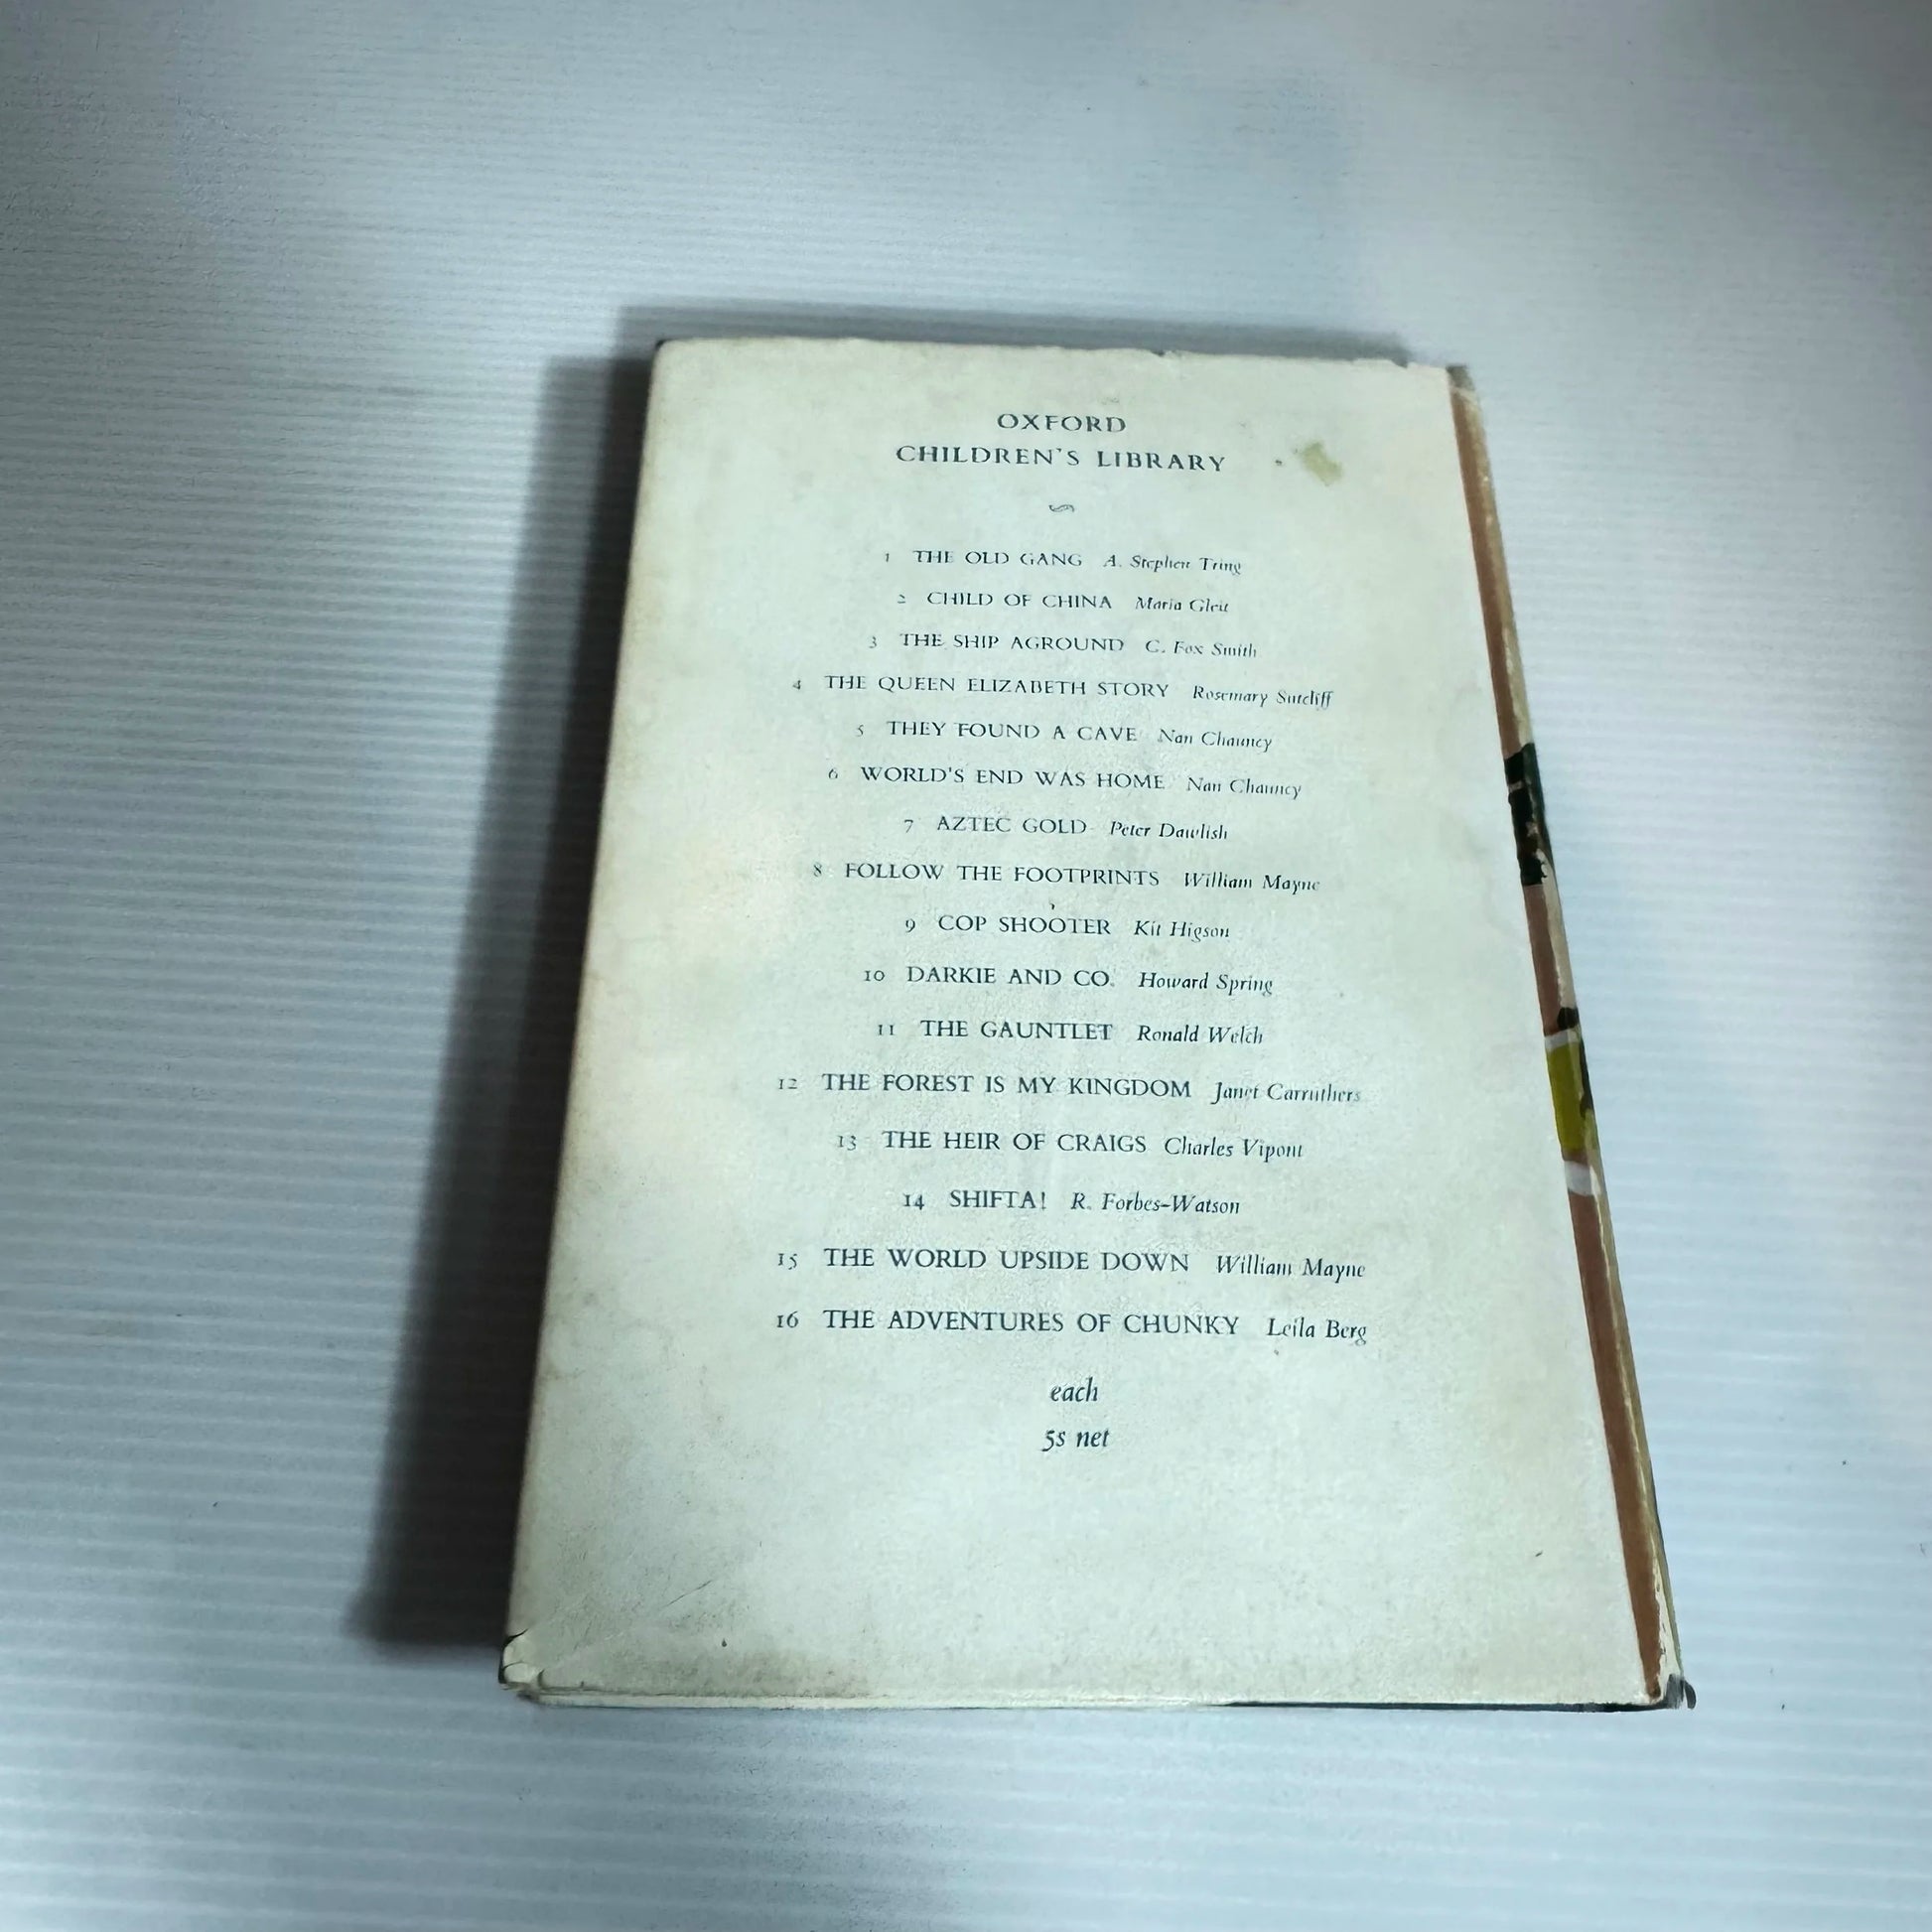 OXFORD
CHILDREN'S LIBRARY
1 THE OLD GANG A. Stephen Tring
2 CHILD OF CHINA Maria Gleit
3 THE SHIP AGROUND C. Fox Smith
4 THE QUEEN ELIZABETH STORY Rosemary Sutcliff
5 THEY FOUND A CAVE Nan Chauncy
6 WORLD'S END WAS HOME Nan Chauncy
7 AZTEC GOLD Peter Dawlish
8 FOLLOW THE FOOTPRINTS William Mayne
9 COP SHOOTER Kit Higson
10 DARKIE AND CO. Howard Spring
11 THE GAUNTLET Ronald Welch
12 THE FOREST IS MY KINGDOM Janet Carruthers
13 THE HEIR OF CRAIGS Charles Vipont
14 SHIFTA! R. Forbes-Watson
15 THE WORLD UPSIDE DOWN William Mayne
16 THE ADVENTURES OF CHUNKY Leila Berg
each
5s net